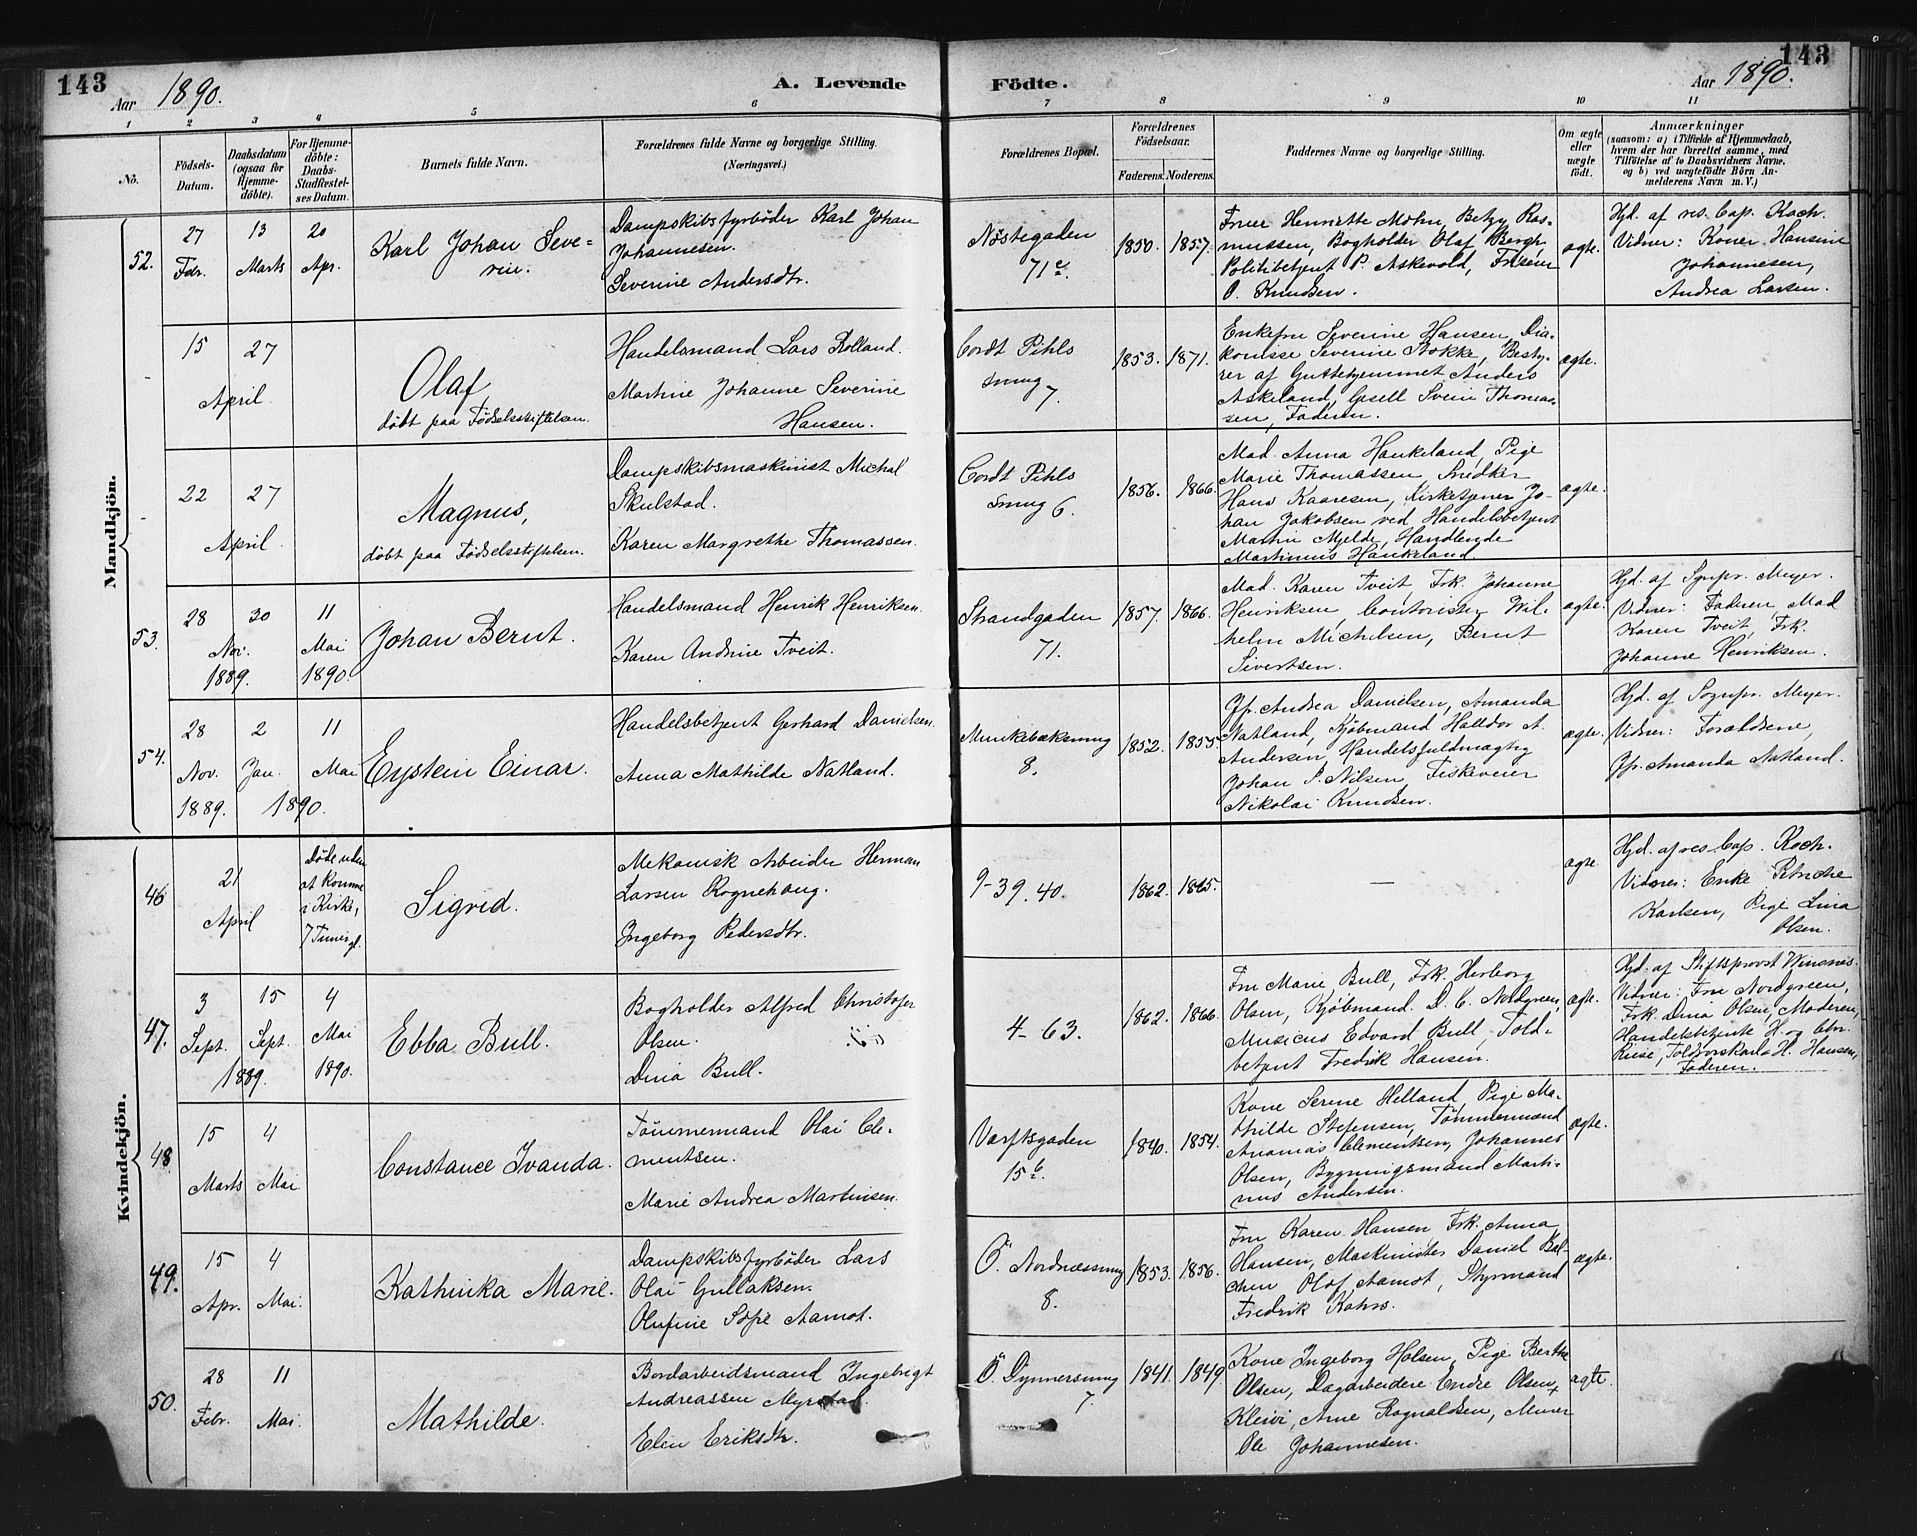 143
Aar 1890.
A. Levende
Födte.
Aar 1890.
143
1 2 3 4 5 6 7 8 9 10 11
No.
Födsels-
Datum.
Daabsdatum
(ogsaa for
Hjemme-
döbte).
For Hjemme-
döbte:
Daabs-
Stadfæstel-
ses Datum.
Barnets fulde Navn.
Forældrenes fulde Navne og borgerlige Stilling.
(Næringsvei.)
Forældrenes Bopæl.
Forældrenes
Födselsaar.
Faderens. Moderens.
Faddernes Navne og borgerlige Stilling.
Om ægte
eller
uægte
födt.
Anmærkninger
(saasom: a) i Tilfælde af Hjemmedaab,
hvem der har forrettet samme, med
Tilföielse af to Daabsvidners Navne.
og b) ved uægtefödte Börn An-
melderens Navn m. V.)
Mandkjön.
52.
27
Fdr.
13
Marts
20
Apr.
Karl Johan Seve-
rin.
Dampskibsfyrböder Karl Johan
Johannesen.
Severine Andersdtr.
Nöstegaden
71c.
1850. 1857.
Fruer Henriette Mohn, Betzy Ras-
mussen, Bogholder Olaf Bergh,
Politibetjent P. Askevold, Frisør
O. Knudsen.
ægte.
Hjd. af res. Cap. Koch.
Vidner: Koner Hansine
Johannesen,
Andrea Larsen.
15 27
April
Olaf
döbt paa Födselsstiftelsen.
Handelsmand Lars Rolland.
Martine Johanne Severine
Hansen.
Cordt Pihls
smug
7.
1853. 1871.
Enkefru Severine Hansen, Dia-
konisse Severine Bokke, Besty-
rer af Guttehjemmet Anders
Askeland, Gsell Svein Thomas-
sen, Faderen.
ægte.
22 27
April
Magnus,
döbt paa Födselsstiftelsen.
Dampskibsmaskinist Michal
Skulstad.
Karen Margrethe Thomassen.
Cordt Pihls
smug 6.
1856. 1866.
Mad. Anna Haukeland, Pige
Marie Thomassen, Snedker
Hans Kaaresen, Kirketjener Jo-
han Jakobsen ved Handelsbetjent
Martin Mjelde, Handlende
Martinus Haukeland.
ægte.
53.
28
Nov.
1889.
30
11
Mai
1890.
Johan Bernt.
Handelsmand Henrik Henriksen.
Karen Andrine Tveit.
Strandgaden
71.
1857. 1866.
Mad. Karen Tveit, Frk. Johanne
Henriksen, Contorister Wil-
helm Michelsen, Bernt
Sivertsen.
ægte.
Hjd. af Sgnpr. Meyer.
Vidner: Faderen, Mad
Karen Tveit, Frk.
Johanne Henriksen.
54.
28
Nov.
1889.
2
Jan.
11
Mai
1890.
Eystein Einar.
Handelsbetjent Gerhard Danielsen.
Anna Mathilde Natland.
Munkebæksmug
8.
1852. 1855
Jfr. Andrea Danielsen, Amanda
Natland, Kjöbmand Halldor A.
Andersen, Handelsfuldmægtig
Johan P. Nilsen, Fiskeveier
Nikolai Knudsen.
ægte.
Hjd. af Sognpr. Meyer.
Vidner: Forældrene,
Jfr. Amanda Natland.
Kvindekjön.
46
21
April
Döde uden
at komme
i Kirke,
7 Timer gl.
Sigrid.
Mekanisk Arbeider Herman
Larsen Rognehaug.
Ingeborg Pedersdtr.
9-39.40.
1862. 1865.
—
ægte
Hjd. af res Cap. Koch.
Vidner: Enke
Karlsen, Pige Lina
Olsen.
47.
3
Sept.
15
Sept.
1889.
4
Mai
1890.
Ebba Bull.
Bogholder Alfred Christofer
Olsen.
Dina Bull.
4-63.
1862. 1866.
Fru Marie Bull, Frk. Herborg
Olsen, Kjöbmand. D. C. Nordgreen,
Musicus Edvard Bull, Told-
betjent Fredrik Hansen.
ægte.
Hjd. af Stiftsprovst Winsnes.
Vidner: Fru Nordgreen,
Frk. Dina Olsen, Moderen,
Handelsbetjente H. og Chr.
Riise, Toldvorskarl H. Hansen,
Faderen.
48
15
Marts
4
Mai
Constance Ivanda.
Tömmermand Olai Cle-
mentsen.
Marie Andrea Martinsen.
Værftsgaden
15b.
1840. 1854.
Kone Serine Helland, Pige Ma-
thilde Stefensen, Tömmermænd
Ananias Clementsen, Johannes
Olsen, Bygningsmand Marti-
nus Andersen.
ægte.
49.
15
Apr.
4
Mai.
Kathinka Marie.
Dampskibsfyrböder Lars
Olai Gullaksen.
Olufine Sofie Aamot.
Ö. Nordnæssmug
8.
1853. 1856.
Fru Karen Hansen, Frk. Anna
Hansen, Maskinister Daniel Bal-
chen Olaf Aamot, Styrmand
Fredrik Kahrs.
ægte.
50.
28
Febr.
11
Mai.
Mathilde.
Bordarbeidsmand Ingebrigt
Andreassen Myrstad.
Elen Eriksdtr.
Ö. Dynnersmug
7.
1841. 1849
Kone Ingeborg Holsen, Pige Berthe
Olsen, Dagarbeidere Endre Olsen
Kleivi, Arne Rognaldsen, Murer
Ole Johannesen.
ægte.